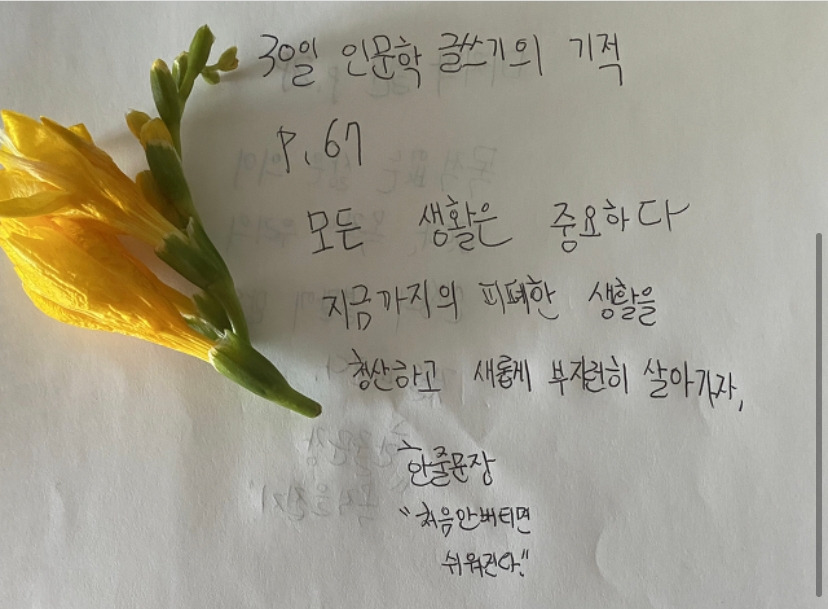 30일 인문학 글쓰기의 기적
P.67
모든 생활은 중요하다
지금까지의 피폐한 생활을
청산하고 새롭게 부지런히 살아가자,
한줄문장
"처음만버티면
쉬워진다."